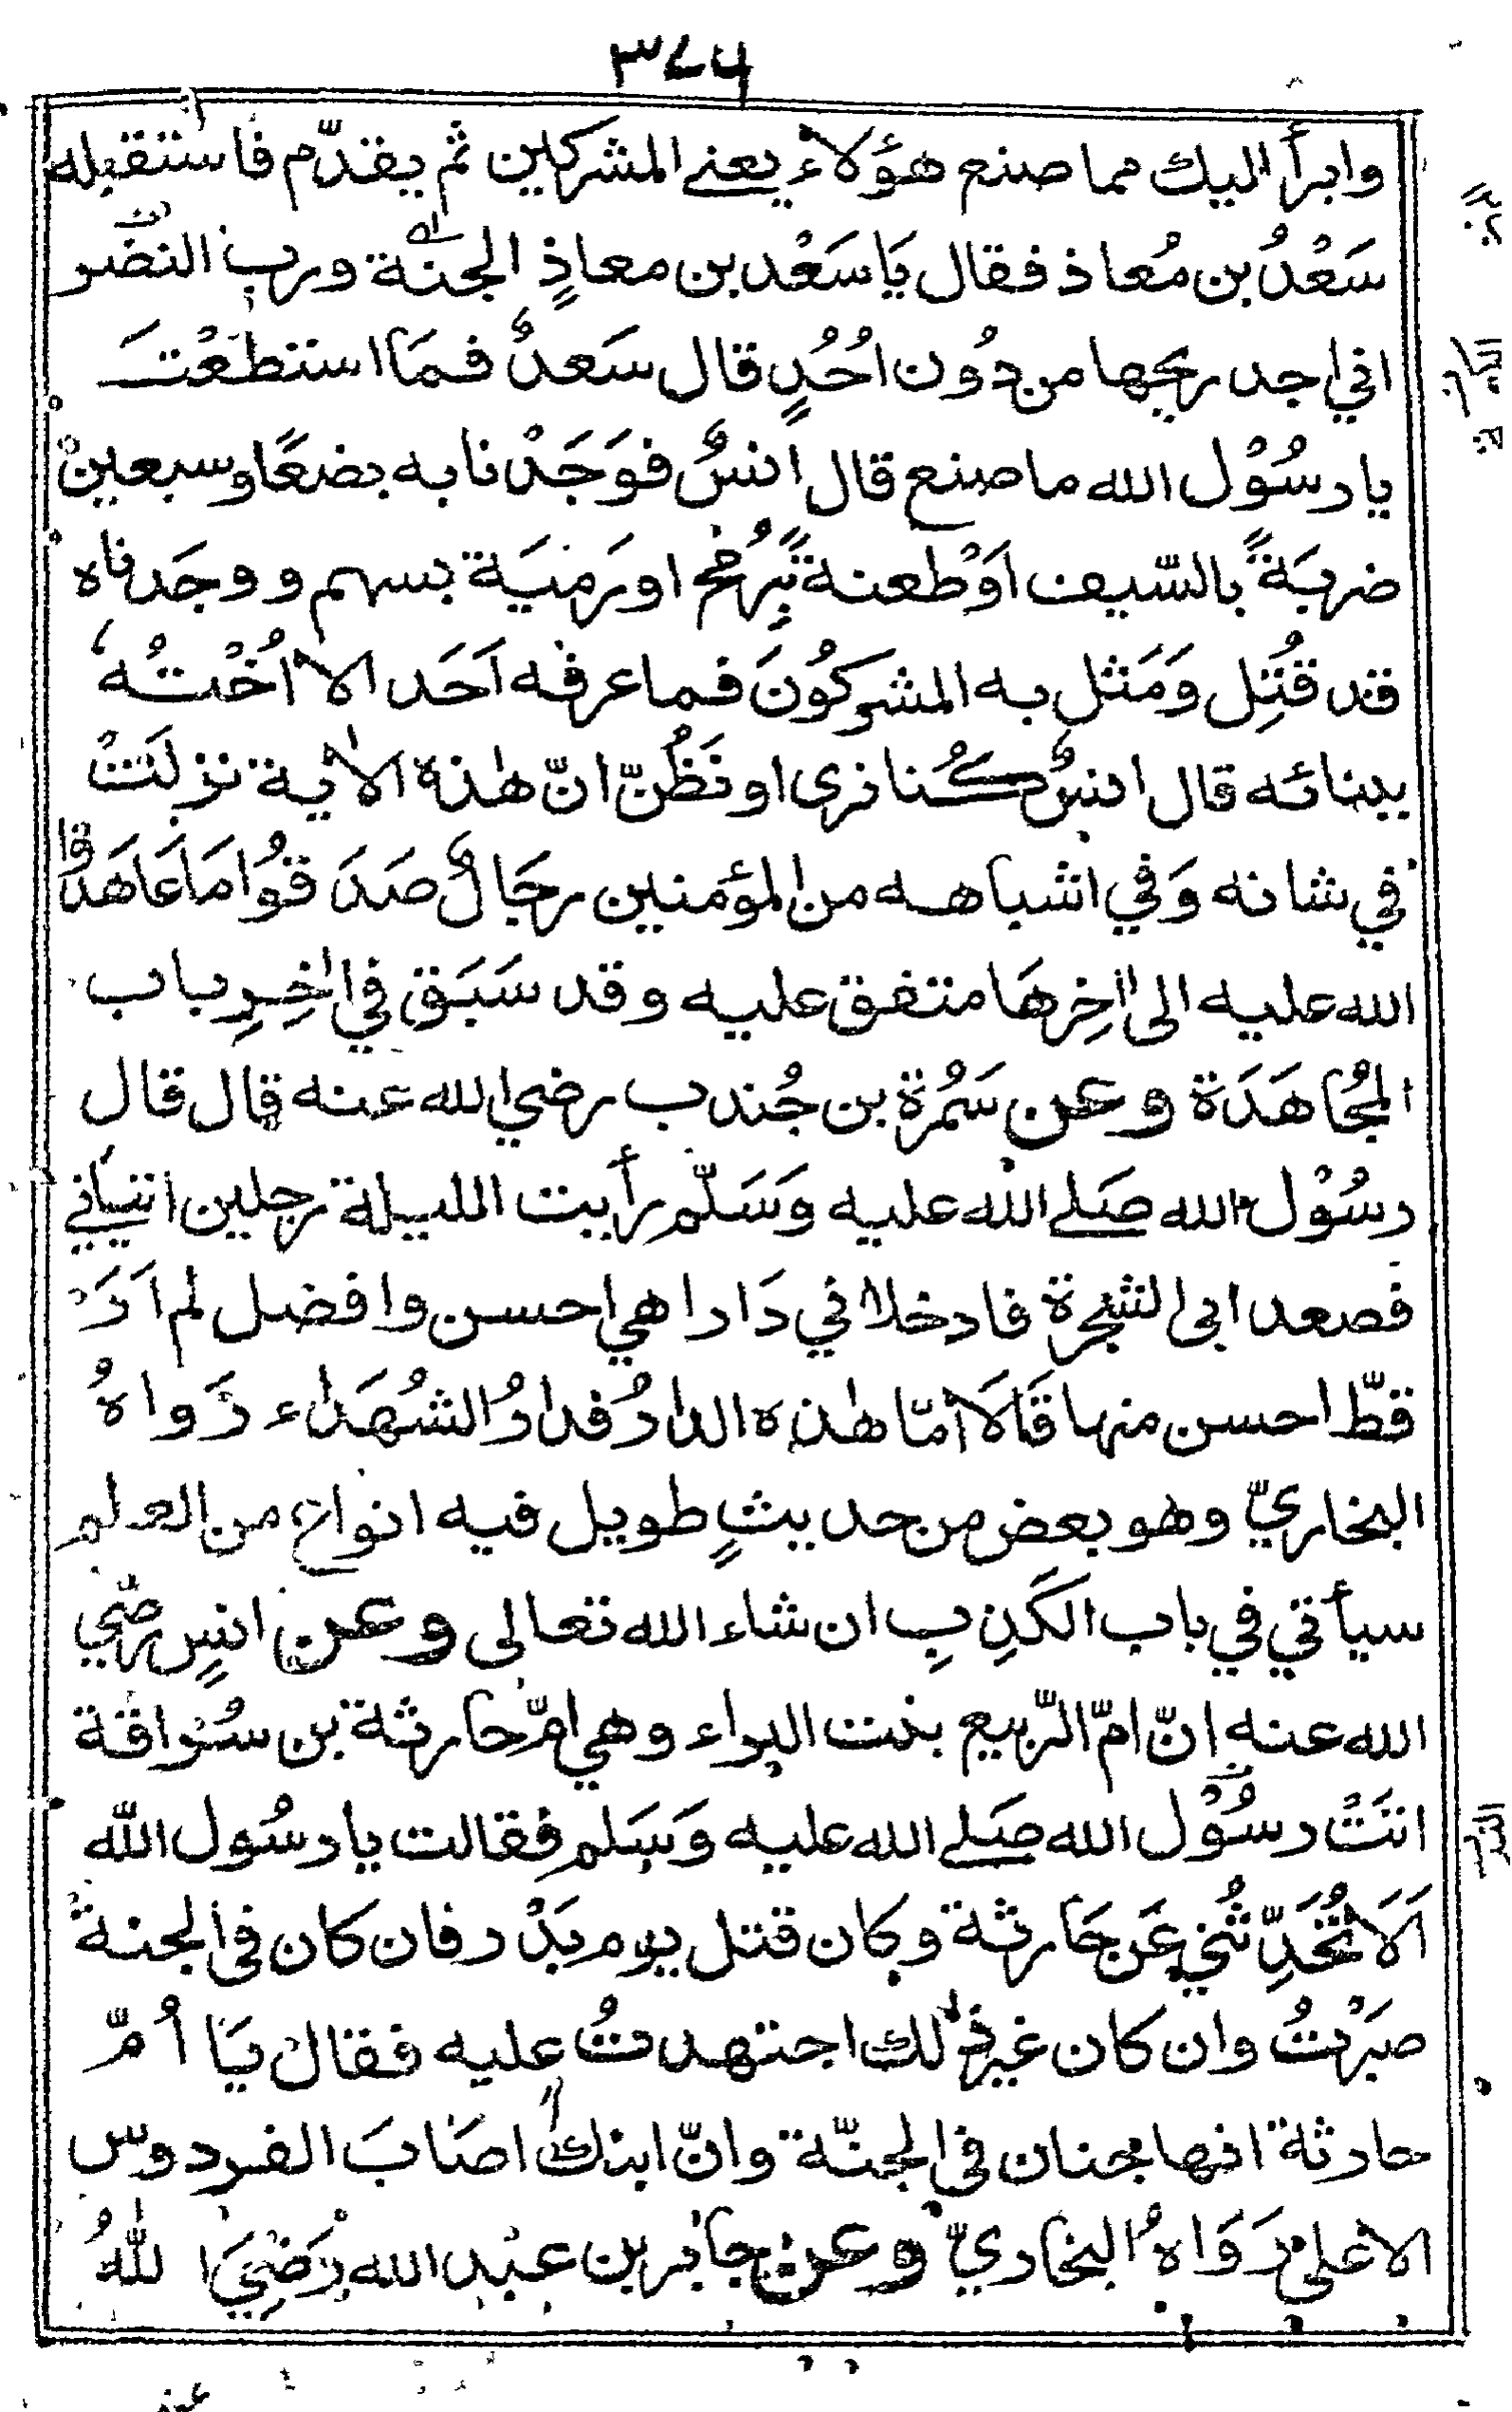 ٣٧٤
وابرأ اليك مما صنع هؤلاء يعني المشركين ثم يقدّم فاستقبله
سَعْدُ بن مُعاذ فقال يَا سَعْد بن معاذٍ الجنّة ورب النضر
اني اجد ريحها من دُون اُحُدٍ قال سَعدٌ فمَا استطعْتَ
يا رسُوْل الله ما صنع قال انسٌ فوَجَدْنا به بضعًا وسبعين
ضربَةً بالسّيف اَوْ طعنةً بِرُمْحٍ او رَميَة بسهم ووجَدناه
قد قُتِل وَمَثل به المشركُونَ فما عرفه اَحَد الا اُخْتُهُ
ببنائه قال انسٌ كُنا نرى او نَظُنّ انّ هٰذه الاٰية نزلَتْ
في شانه وَفي اشباهه من المؤمنين رجَالٌ صَدَقُوْا مَا عَاهَدُوا
الله عليه الى اٰخِرهَا متفق عليه وقد سَبَق في اٰخِرِ باب
المُجَاهَدَة وعن سَمُرة بن جُندب رضي الله عنه قال قال
رسُوْل الله صَلى الله عليه وَسَلّم رأيت الليلة رجلين اتياني
فصعدا بى الشجرة فادخلا في دَارا هي احسن وافضل لم اَرَ
قطّ احسن منها قَالَا أمّا هٰذه الدارُ فدارُ الشُهَدٰاء رَواهُ
البخاريّ وهو بعض من حديثٍ طويل فيه انواع من العلم
سيأتي في باب الكَذِبِ ان شاء الله تعالى وعن انسٍ رضي
الله عنه انّ امّ الرّبيع بنت البراء وهي امّ حارثة بن سُراقة
اتتْ رسُوْل الله صَلى الله عليه وَسَلم فقالت يا رسُول اللّه
اَلَا تُحَدّثُني عَن حَارثة وكان قتل يوم بَدْر فان كان في الجنة
صبَرْتُ وان كان غير ذٰلك اجتهدتُ عليه فقال يَا اُمّ
حارثة انها جنان في الجنّة وانّ ابنك اصَابَ الفردوس
الاعلىٰ رَوَاهُ البخاريّ وعن جابر بن عبد الله رَضِيَ اللّٰهُ
عنه